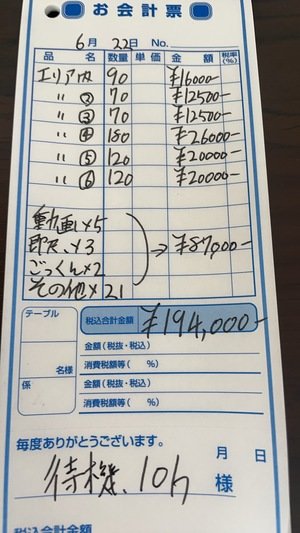 お会計票
6月 22日 No.
品名 数量 単価 金額 税率(%)
エリア内 90 ¥16000-
〃 ② 70 ¥12500-
〃 ③ 70 ¥12500-
〃 ④ 180 ¥26000-
〃 ⑤ 120 ¥20000-
〃 ⑥ 120 ¥20000-
動画×5
即尺×3
ごっくん×2
その他×21
→ ¥87,000-
テーブル
名様
係
税込合計金額 ¥194,000-
金額(税抜・税込)
消費税額等( %)
金額(税抜・税込)
消費税額等( %)
毎度ありがとうございます。 月 日
待機、10h 様
税込合計金額